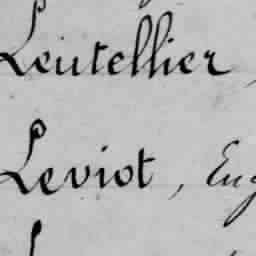 Leutellier
Leviot, Eug